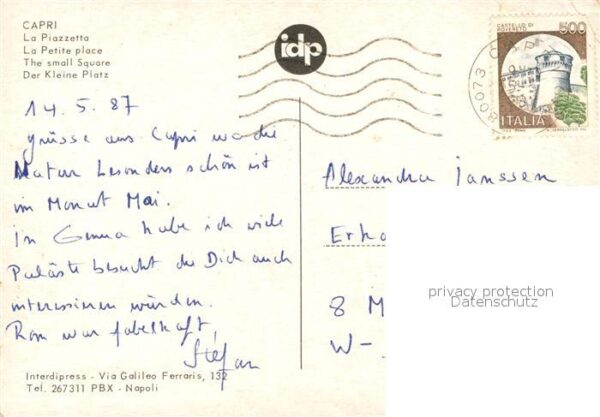 CAPRI
La Piazzetta
La Petite place
The small Square
Der Kleine Platz
idp
CASTELLO DI
ROVERETO
500
ITALIA
80073 CAPRI
14.5.87
grüsse aus Capri wo die
Natur besonders schön ist
im Monat Mai.
In Genua habe ich viele
Paläste besucht die Dich auch
interessieren würden.
Rom war fabelhaft,
Stefan
Alexandra Janssen
Erha
8 M
W-
privacy protection
Datenschutz
Interdipress - Via Galileo Ferraris, 132
Tel. 267311 PBX - Napoli